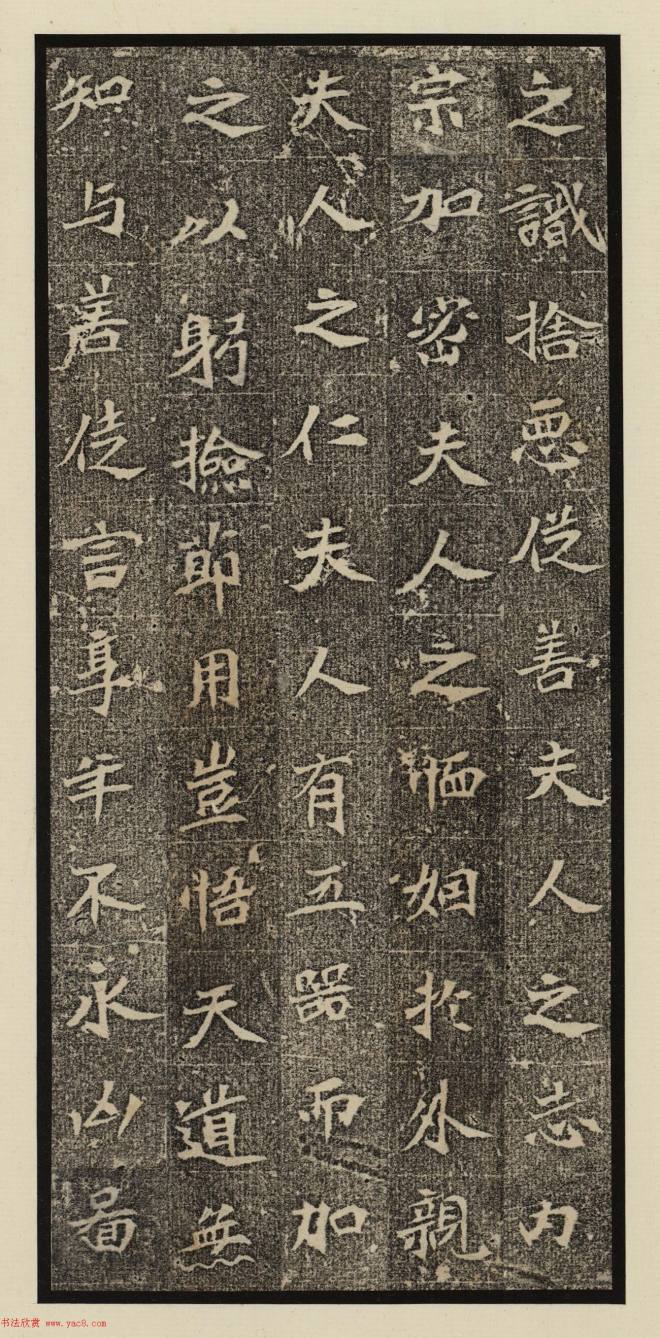 之識捨惡從善夫人之志内
宗加密夫人之恤姻扵外親
夫人之仁夫人有五器而加
之以躬撿節用豈悟天道無
知与善徒言享年不永凶啚
书法欣赏 www.yac8.com